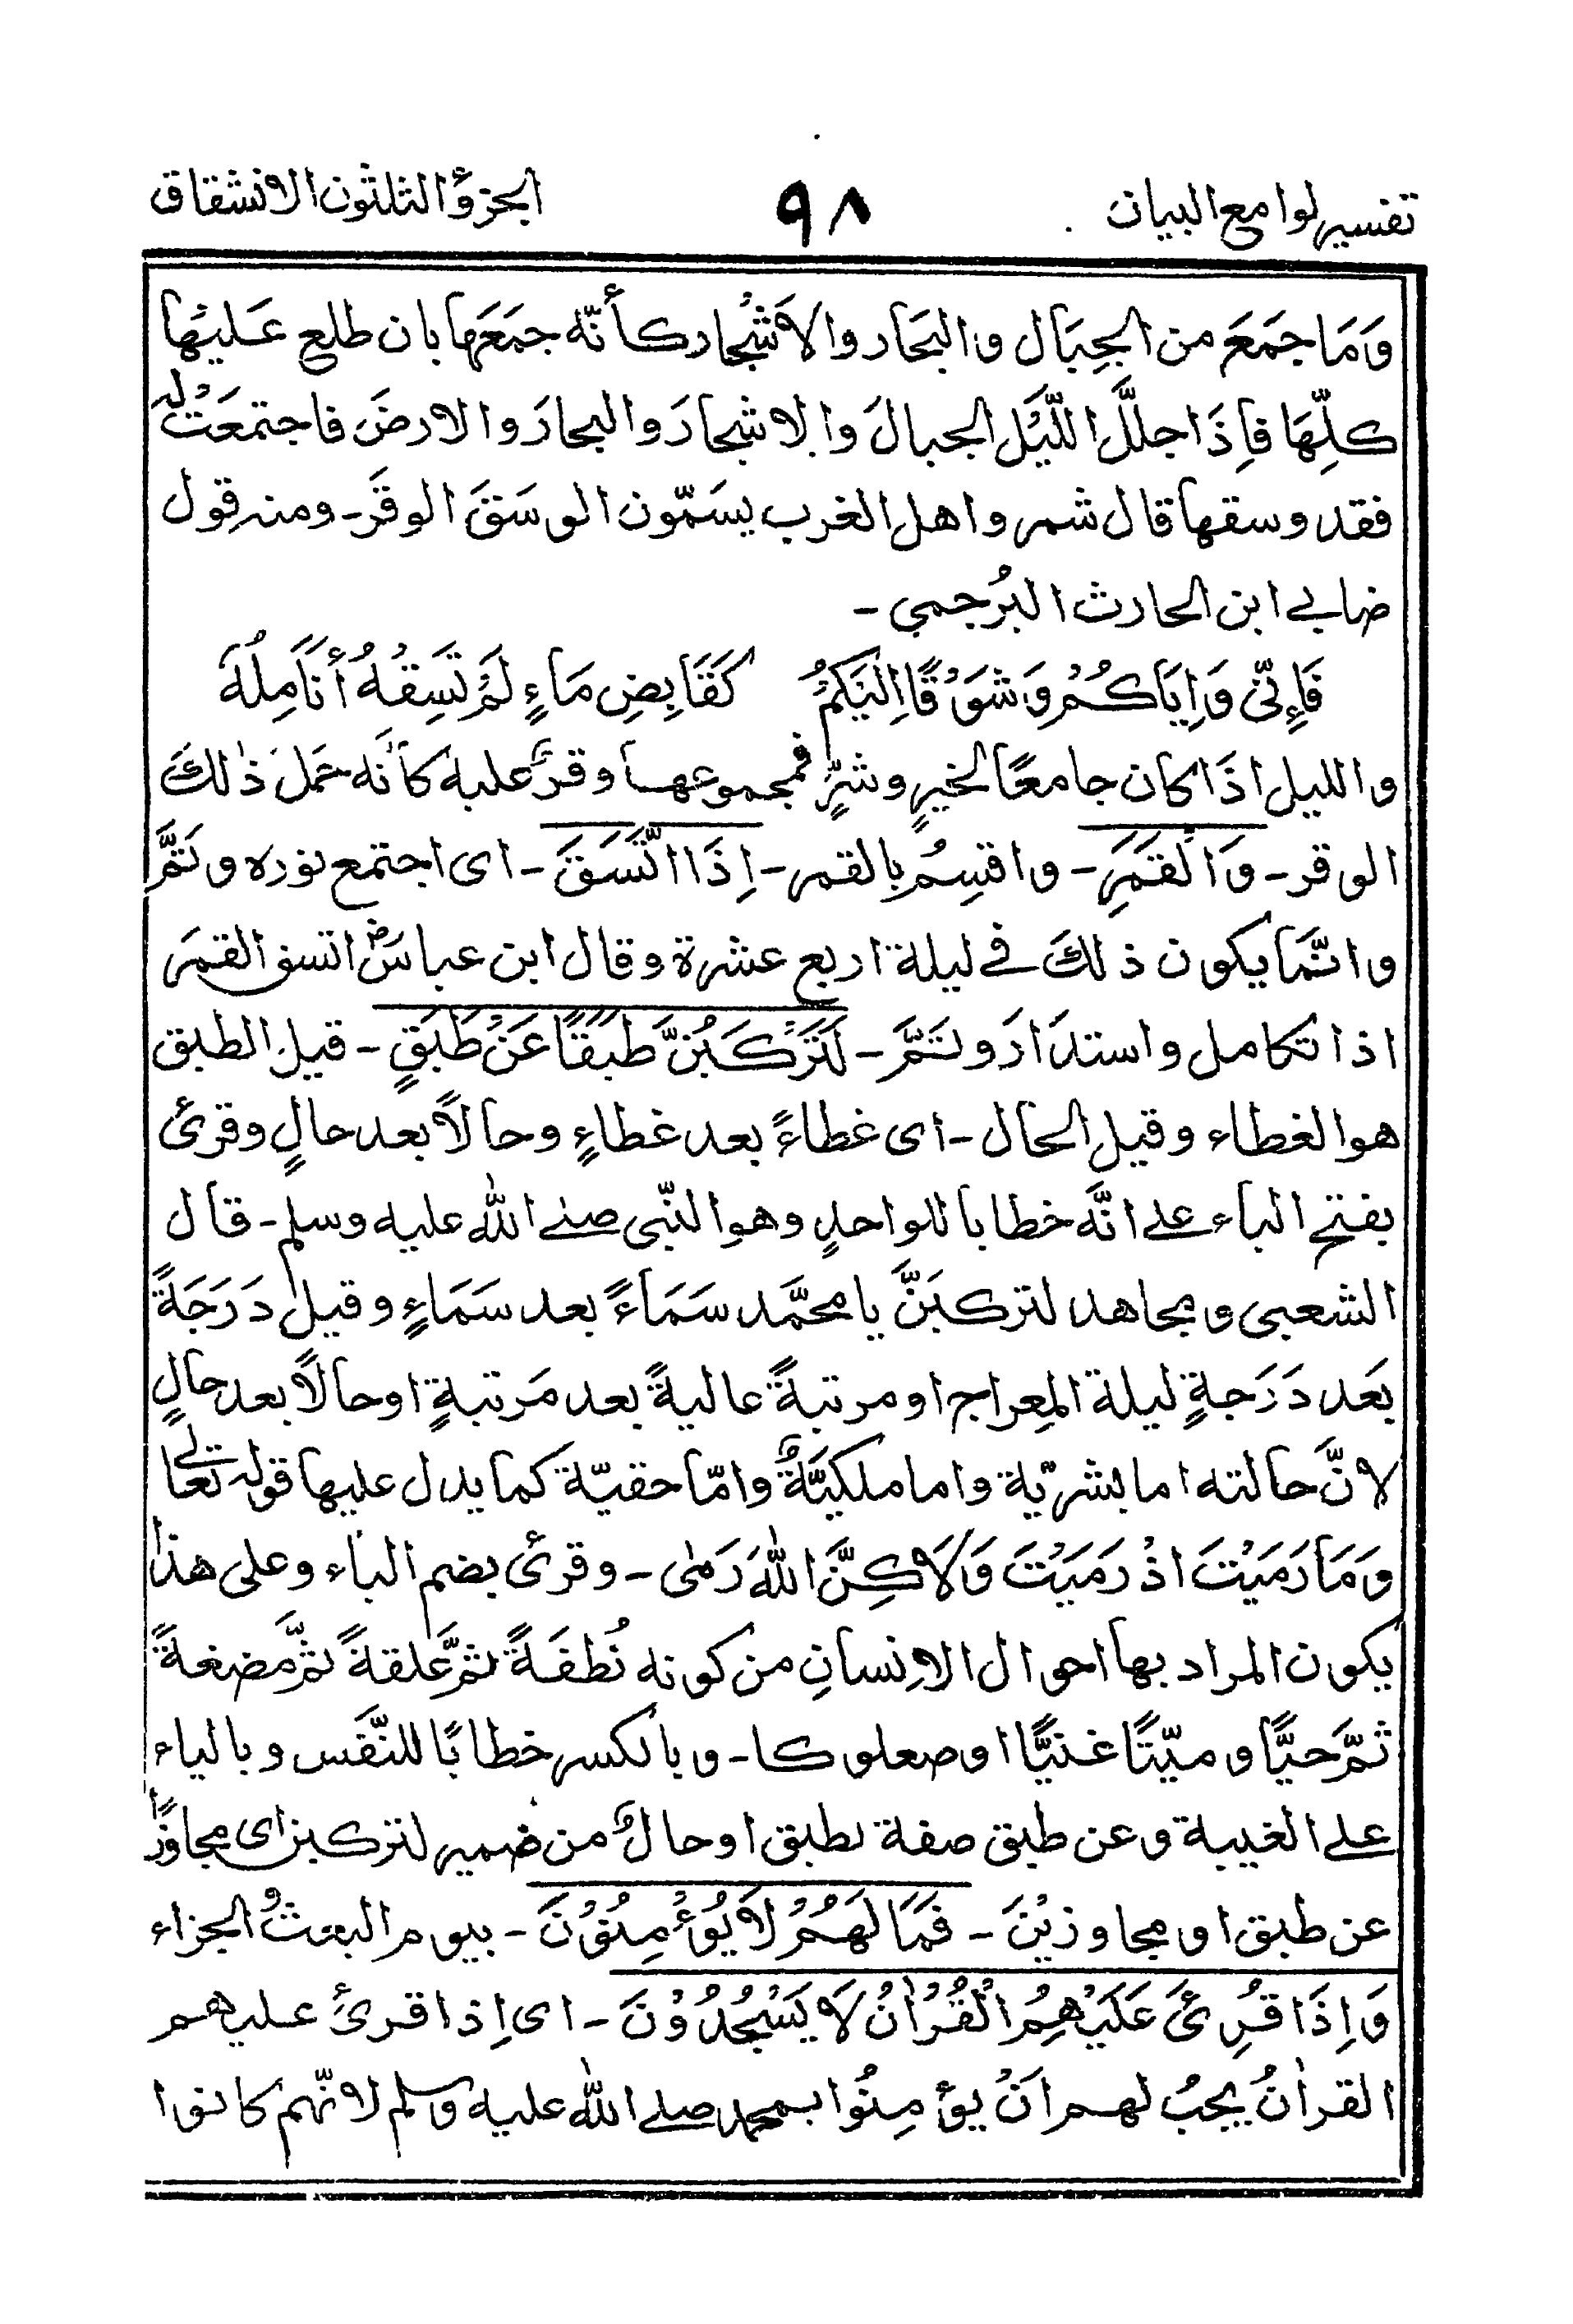 تفسير لوامع البيان ٩٨ الجزؤ الثلثون الانشقاق
وَمَا جمَعَ من الجِبَال والبحَار والاَشْجار كأنّه جمَعَها بان طلع عَليْها
كلِّهَا فاِذَا جللَّ اللّيْل الجبالَ والاشجارَ والبحارَ والارضَ فاجتمعَتْ لهَ
فقد وسقها قال شمر واهل الغرب يسَمّون الوسَقَ الوقَر ـ ومنه قول
ضابي ابن الحارث البُرجمي ـ
فَاِنّى وَاِيَاكُمُ وَشَوْقًا اِلَيْكُمُ كَقَابِضِ مَاءٍ لَمْ تَسِقْهُ أنَامِلُهَ
والليل اذَا كان جامعًا لخيرٍ وشرٍّ فمجموعها وقرٌ عليه كأنَه حَملَ ذٰلكَ
الوقر ـ وَالْقَمَرِ ـ واقسِمُ بالقمر ـ اِذَا اتَّسَقَ ـ اى اجتمع نوره وتَمَّ
وانّمَا يكون ذلكَ فى ليلة اربع عشرة وقال ابن عباسؓ اتسق القمَر
اذا تكامل واستدَارَ وتَمَّ ـ لَتَرْكَبُنَّ طَبَقًا عَنْ طَبَقٍ ـ قيل الطبق
هو الغطاء وقيل الحال ـ اى غطاءً بعد غطاءٍ وحالاً بعد حالٍ وقرئ
بفتح الباء على انَّه خطابا للواحدٍ وهو النّبى صلى الله عليه وسلم ـ قال
الشعبى ومجاهد لتركبَنَّ يا محمَّد سَمَاءً بعد سَمَاءٍ وقيل دَرَجَةً
بعَد دَرَجةٍ ليلة المِعراج او مرتبةً عاليةً بعد مَرتبةٍ او حالاً بعد حالٍ
لانَّ حالته اما بشريّة واما ملكيَّةٌ وامّا حقيّة كما يدل عليها قوله تعالى
وَمَا رَمَيْتَ اذْ رَمَيْتَ وَلَاكِنَّ اللهَ رَمٰى ـ وقرئ بضم الباء وعلى هذا
يكون المراد بها احوال الاِنسانِ من كونه نُطفَةً ثمَّ علقةً ثمَّ مضغةً
ثمَّ حيًّا وميّتًا غنيًّا او صعلوكا ـ وبالكسر خطابًا للنَّفَس وبالياء
على الغيبة وعن طبق صفة لطبق او حالٌ من ضمير لتركبن اى مجاوزًا
عن طبق او مجاوزيْنَ ـ فَمَا لَهُمْ لَا يُؤْمِنُوْنَ ـ بيوم البعث والجزاء
وَاِذَا قُرِئَ عَلَيْهِمُ الْقُرْاٰنُ لَا يَسْجُدُوْنَ ـ اى اِذا قرئ عليهم
القراٰنُ يجبُ لهم انْ يؤمِنُوا بمحمد صلى الله عليه وسلم لانّهم كانوا